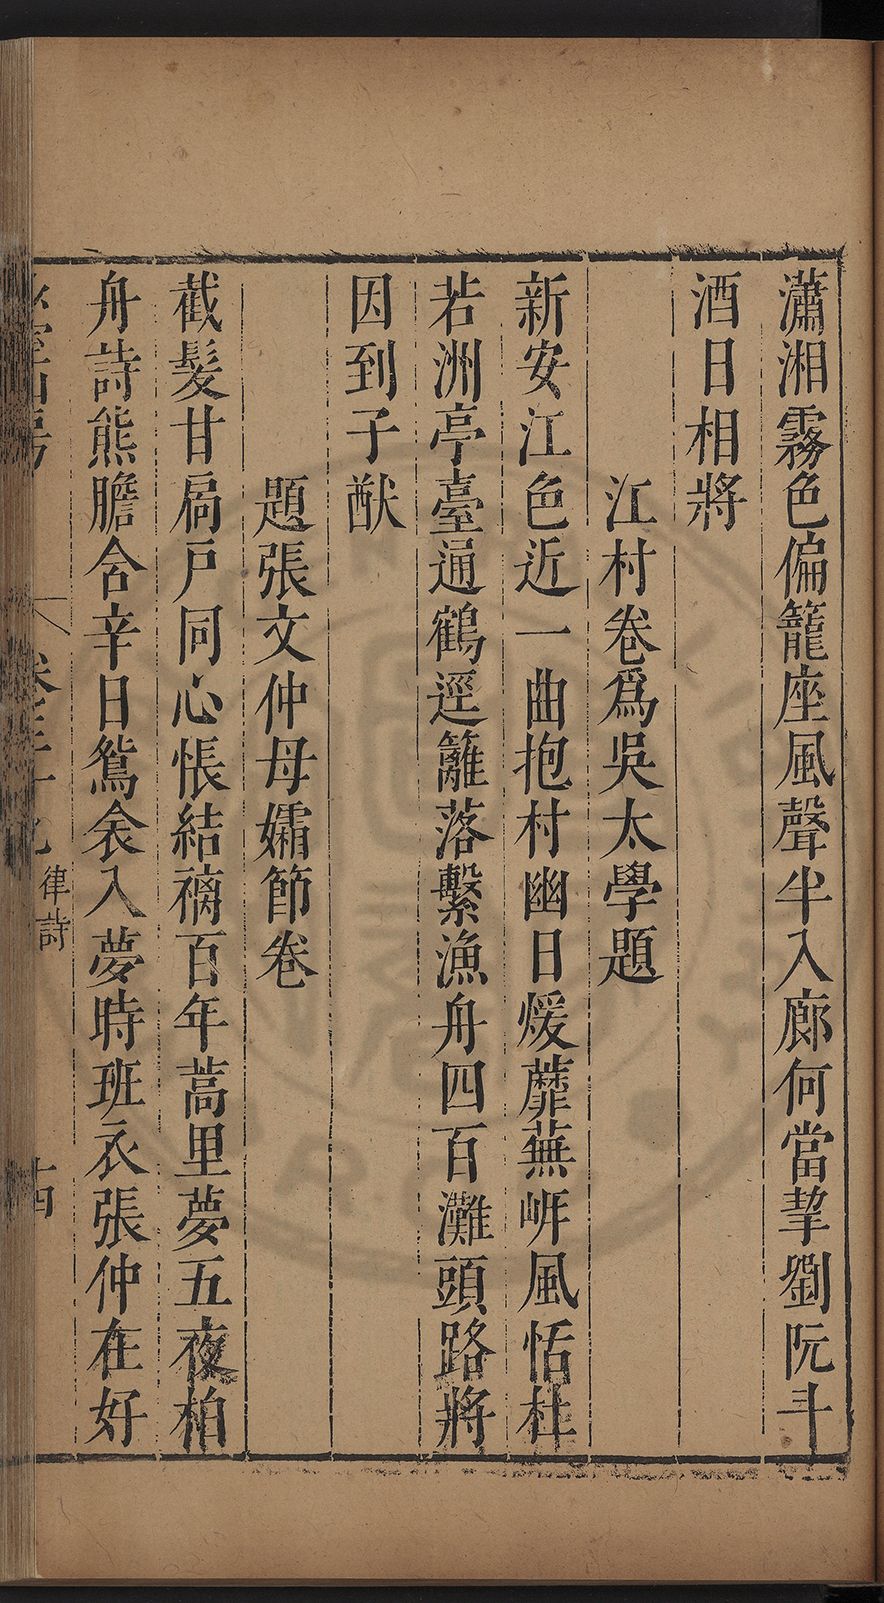 瀟湘霧色偏籠座風聲半入廊何當挈劉阮斗
酒日相將
江村卷爲吳太學題
新安江色近一曲抱村幽日煖蘼蕪岍風恬杜
若洲亭臺通鶴逕籬落繫漁舟四百灘頭路將
因到子猷
題張文仲母孀節卷
截髮甘扃戸同心悵結褵百年蒿里夢五夜柏
舟詩熊膽含辛日鴛衾入夢時班衣張仲在好
律詩